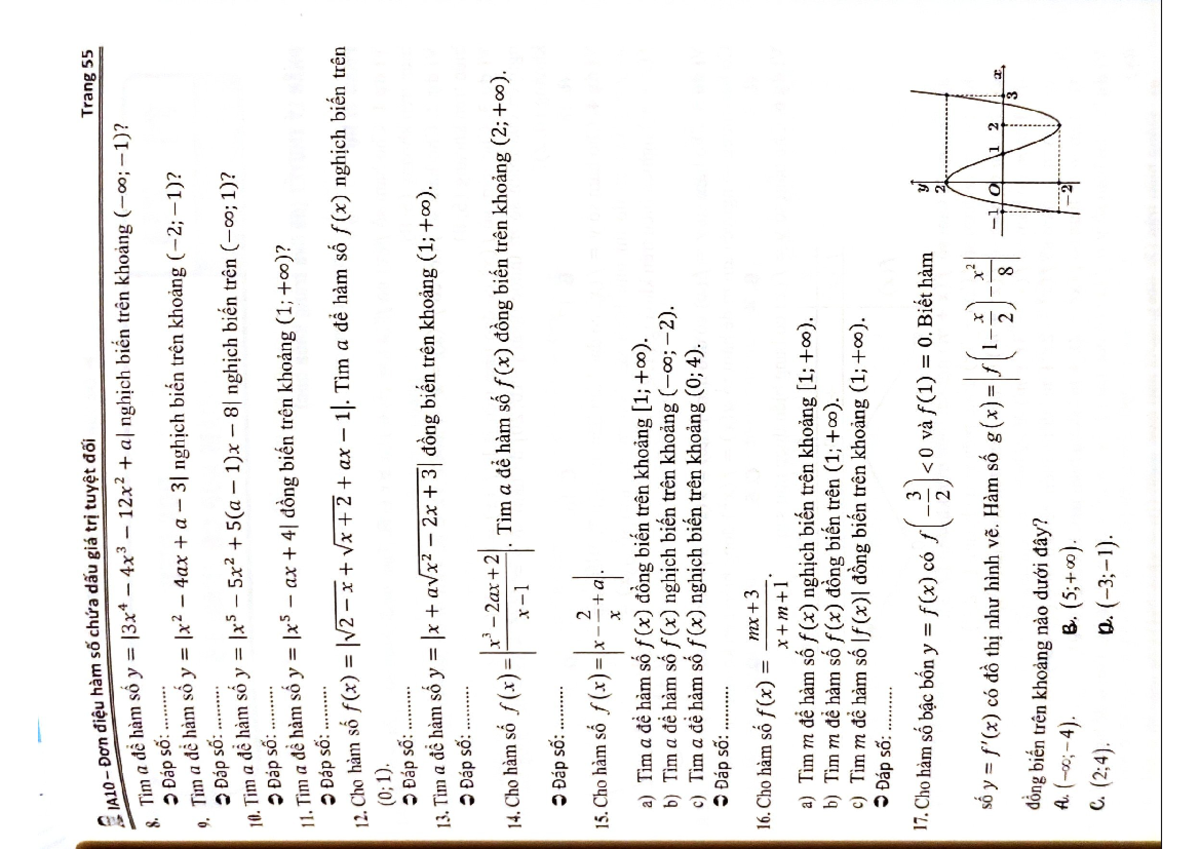 IA10 – Đơn điệu hàm số chứa dấu giá trị tuyệt đối Trang 55
8. Tìm a để hàm số y = |3x⁴ − 4x³ − 12x² + a| nghịch biến trên khoảng (−∞; −1)?
➲ Đáp số: ..........
9. Tìm a để hàm số y = |x² − 4ax + a − 3| nghịch biến trên khoảng (−2; −1)?
➲ Đáp số: ..........
10. Tìm a để hàm số y = |x⁵ − 5x² + 5(a − 1)x − 8| nghịch biến trên (−∞; 1)?
➲ Đáp số: ..........
11. Tìm a để hàm số y = |x⁵ − ax + 4| đồng biến trên khoảng (1; +∞)?
➲ Đáp số: ..........
12. Cho hàm số f(x) = |√(2 − x) + √(x + 2) + ax − 1|. Tìm a để hàm số f(x) nghịch biến trên
(0; 1).
➲ Đáp số: ..........
13. Tìm a để hàm số y = |x + a√(x² − 2x + 3)| đồng biến trên khoảng (1; +∞).
➲ Đáp số: ..........
14. Cho hàm số f(x) = |(x³ − 2ax + 2)/(x − 1)|. Tìm a để hàm số f(x) đồng biến trên khoảng (2; +∞).
➲ Đáp số: ..........
15. Cho hàm số f(x) = |x − 2/x + a|.
a) Tìm a để hàm số f(x) đồng biến trên khoảng [1; +∞).
b) Tìm a để hàm số f(x) nghịch biến trên khoảng (−∞; −2).
c) Tìm a để hàm số f(x) nghịch biến trên khoảng (0; 4).
➲ Đáp số: ..........
16. Cho hàm số f(x) = (mx + 3)/(x + m + 1).
a) Tìm m để hàm số f(x) nghịch biến trên khoảng [1; +∞).
b) Tìm m để hàm số f(x) đồng biến trên (1; +∞).
c) Tìm m để hàm số |f(x)| đồng biến trên khoảng (1; +∞).
➲ Đáp số: ..........
17. Cho hàm số bậc bốn y = f(x) có f(−3/2) < 0 và f(1) = 0. Biết hàm
số y = f′(x) có đồ thị như hình vẽ. Hàm số g(x) = |f(1 − x/2) − x²/8|
đồng biến trên khoảng nào dưới đây?
A. (−∞; −4). B. (5; +∞).
C. (2; 4). D. (−3; −1).
y
2
−1 O 1 2 3 x
−2